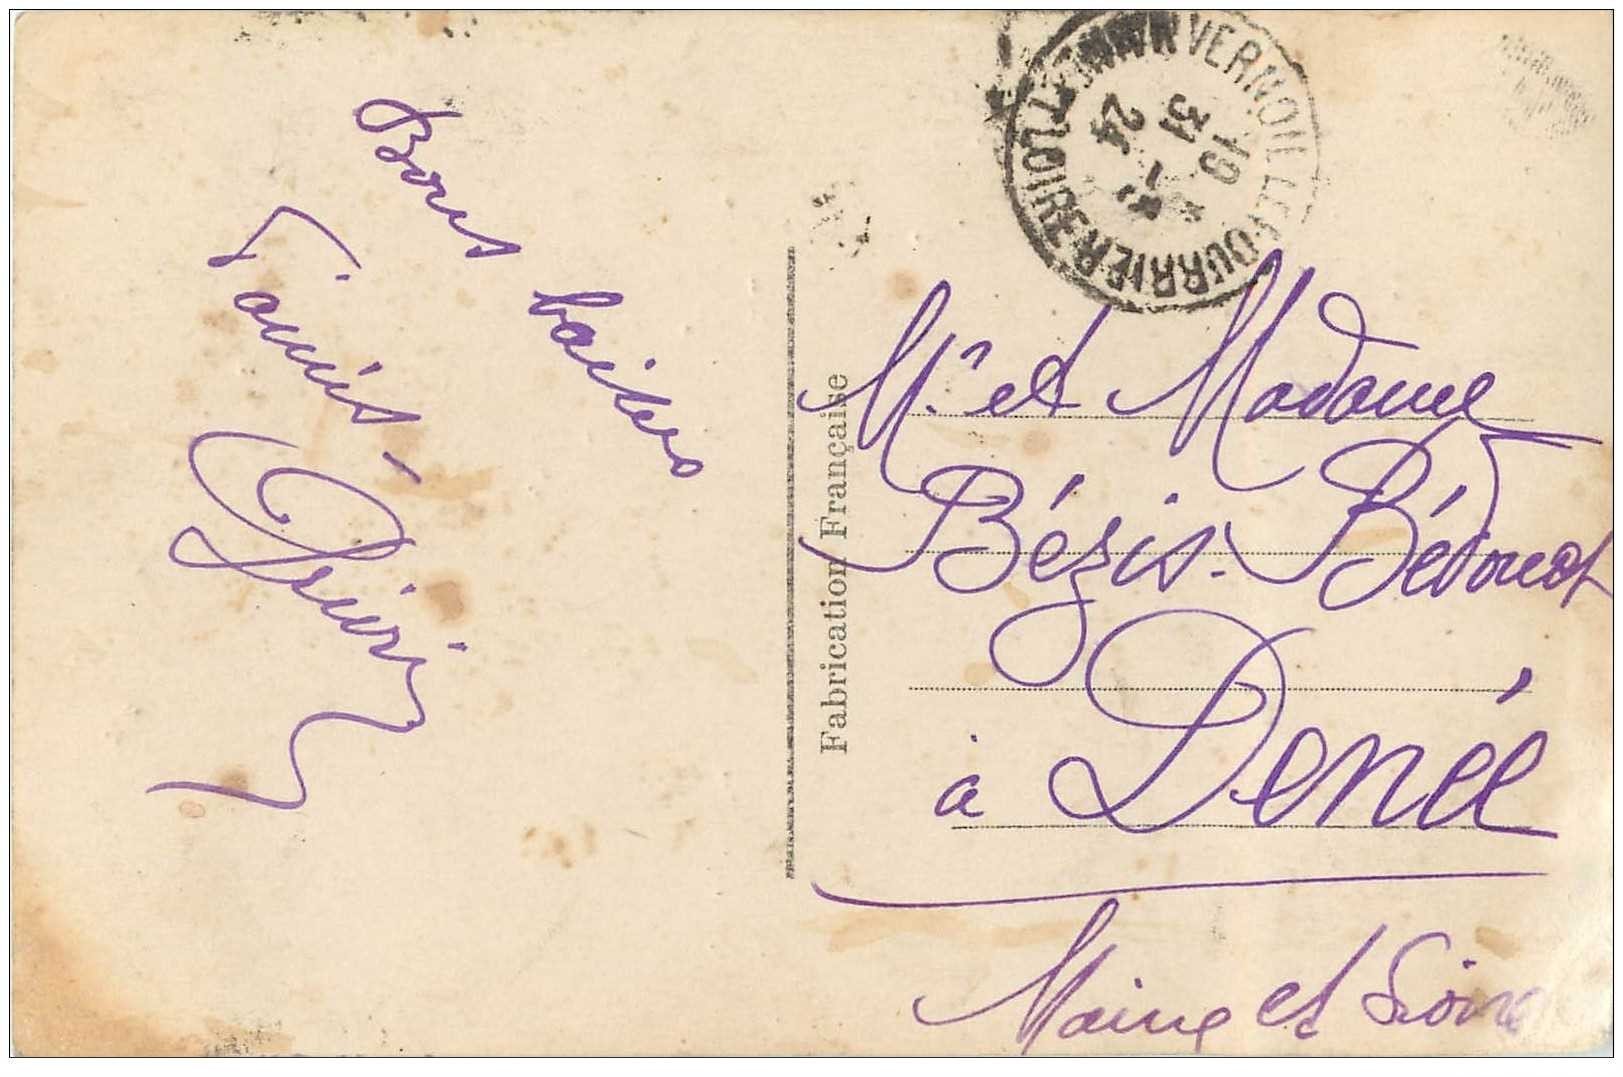 Bons baisers
Fabrication Française
Mr et Madame
Bézis. Bédouet
à Denée
Maine et Loire
VERNOIL LE FOURRIER
Mne & LOIRE
10
31 -5
24